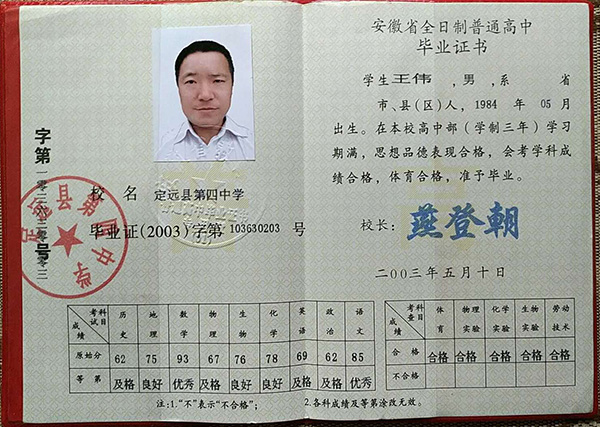 安徽省全日制普通高中
毕业证书
学生王伟,男,系 省
市、县(区)人,1984 年 05月
出生。在本校高中部(学制三年)学习
期满,思想品德表现合格,会考学科成
绩合格,体育合格,准予毕业。
校长:燕登朝
二00三年五月十日
字第
号
校 名 定远县第四中学
毕业证(2003)字第 103630203 号
科目 考试 成绩 历史 地理 数学 物理 生物 化学 英语 政治 语文
原始分 62 75 93 67 76 78 69 62 85
等 第 及格 良好 优秀 及格 良好 良好 及格 及格 优秀
科目 考查 成绩 体育 物理实验 化学实验 生物实验 劳动技术
合 格 合格 合格 合格 合格 合格
不合格
注:1.“不”表示“不合格”; 2.各科成绩及等第涂改无效。